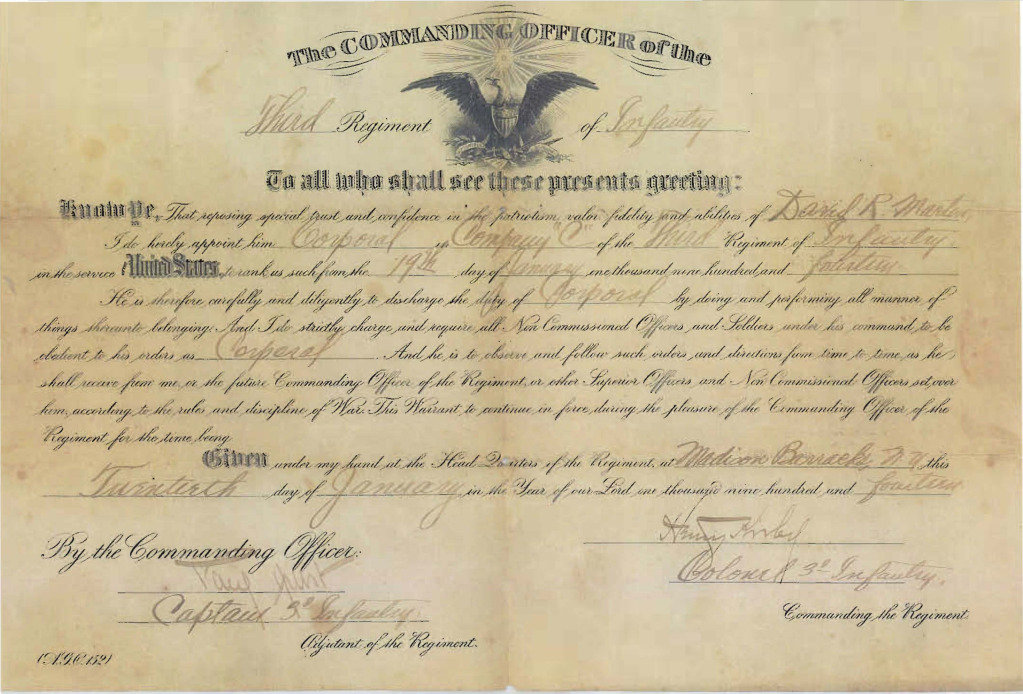 The COMMANDING OFFICER of the
Third Regiment of Infantry
To all who shall see these presents greeting:
Know Ye, That reposing special trust and confidence in the patriotism, valor, fidelity and abilities of David R. Martin,
I do hereby appoint him Corporal in Company "C" of the Third Regiment of Infantry
in the service United States, to rank as such from the 19th day of January one thousand nine hundred and fourteen
He is therefore carefully and diligently to discharge the duty of Corporal by doing and performing all manner of
things thereunto belonging. And I do strictly charge and require all Non Commissioned Officers and Soldiers under his command to be
obedient to his orders as Corporal. And he is to observe and follow such orders and directions from time to time, as he
shall receive from me, or the future Commanding Officer of the Regiment, or other Superior Officers and Non Commissioned Officers set over
him, according to the rules and discipline of War. This Warrant to continue in force during the pleasure of the Commanding Officer of the
Regiment for the time being.
Given under my hand at the Head Quarters of the Regiment, at Madison Barracks, N.Y. this
Twentieth day of January in the Year of our Lord one thousand nine hundred and fourteen
Henry Kirby
By the Commanding Officer:
Colonel 3d Infantry.
Paul
Captain 3d Infantry.
Commanding the Regiment.
Adjutant of the Regiment.
(A.G.O. 152)